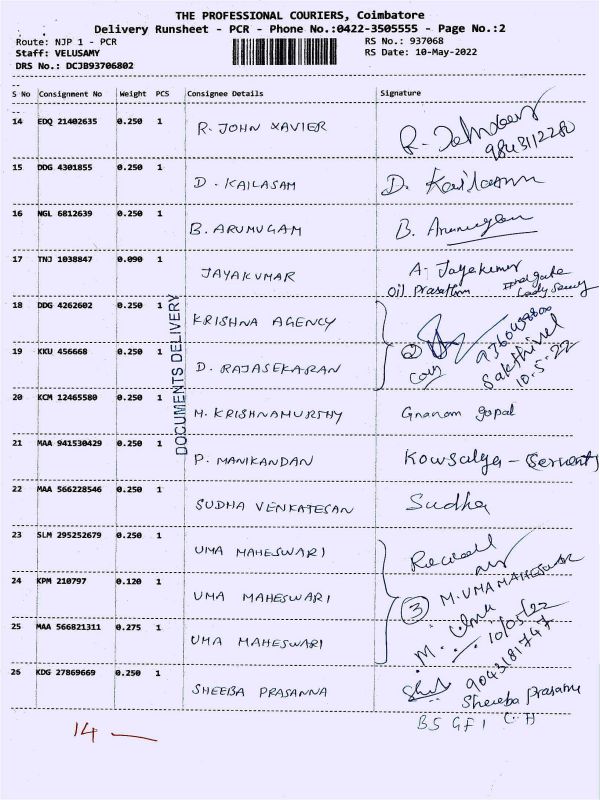 THE PROFESSIONAL COURIERS, Coimbatore
Delivery Runsheet - PCR - Phone No.:0422-3505555 - Page No.:2
Route: NJP 1 - PCR RS No.: 937068
Staff: VELUSAMY RS Date: 10-May-2022
DRS No.: DCJB93706802
S No Consignment No Weight PCS Consignee Details Signature
14 EDQ 21402635 0.250 1 R. JOHN XAVIER R. 9843112280
15 DDG 4301855 0.250 1 D. KAILASAM D. Kailasam
16 NGL 6812639 0.250 1 B. ARUMUGAM B. Arumugam
17 TNJ 1038847 0.090 1 JAYAKUMAR A. Jayakumar
Oil Prasattim
18 DDG 4262602 0.250 1 KRISHNA AGENCY
19 KKU 456668 0.250 1 D. RAJASEKARAN 2 Sakthivel
10.5.22
DOCUMENTS DELIVERY
20 KCM 12465580 0.250 1 M. KRISHNAMURTHY Gnanam gopal
21 MAA 941530429 0.250 1 P. MANIKANDAN Kowsalya - (Servent)
22 MAA 566228546 0.250 1 SUDHA VENKATESAN Sudha
23 SLM 295252679 0.250 1 UMA MAHESWARI Received
24 KPM 210797 0.120 1 UMA MAHESWARI 3 M. UMA MAHESWARI
25 MAA 566821311 0.275 1 UMA MAHESWARI M. Uma 10/05/22
9043181747
26 KDG 27869669 0.250 1 SHEEBA PRASANNA Sheeba Prasanna
BS GF1 C.H
14 —